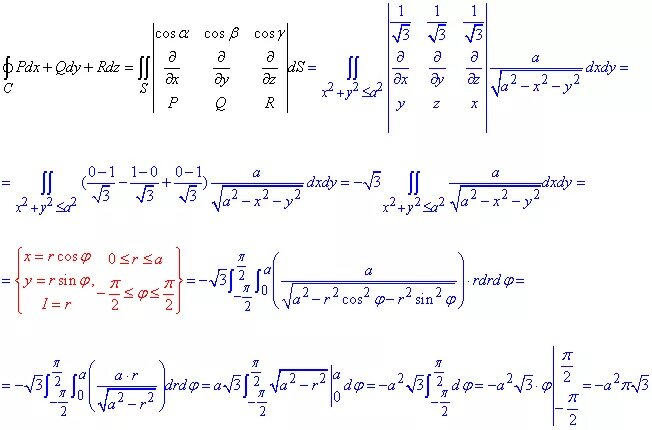 ∮_C Pdx + Qdy + Rdz = ∬_S | cos α  cos β  cos γ ; ∂/∂x  ∂/∂y  ∂/∂z ; P  Q  R | dS = ∬_{x²+y²≤a²} | 1/√3  1/√3  1/√3 ; ∂/∂x  ∂/∂y  ∂/∂z ; y  z  x | a/√(a²−x²−y²) dxdy =
= ∬_{x²+y²≤a²} ((0−1)/√3 − (1−0)/√3 + (0−1)/√3) a/√(a²−x²−y²) dxdy = −√3 ∬_{x²+y²≤a²} a/√(a²−x²−y²) dxdy =
= { x = r cos φ  0 ≤ r ≤ a ; y = r sin φ, −π/2 ≤ φ ≤ π/2 ; I = r } = −√3 ∫_{−π/2}^{π/2} ∫_0^a ( a/√(a²−r² cos² φ−r² sin² φ) ) · rdrd φ =
= −√3 ∫_{−π/2}^{π/2} ∫_0^a ( a·r/√(a²−r²) ) drd φ = a√3 ∫_{−π/2}^{π/2} √(a²−r²) |_0^a d φ = −a²√3 ∫_{−π/2}^{π/2} d φ = −a²√3 · φ |_{−π/2}^{π/2} = −a²π√3